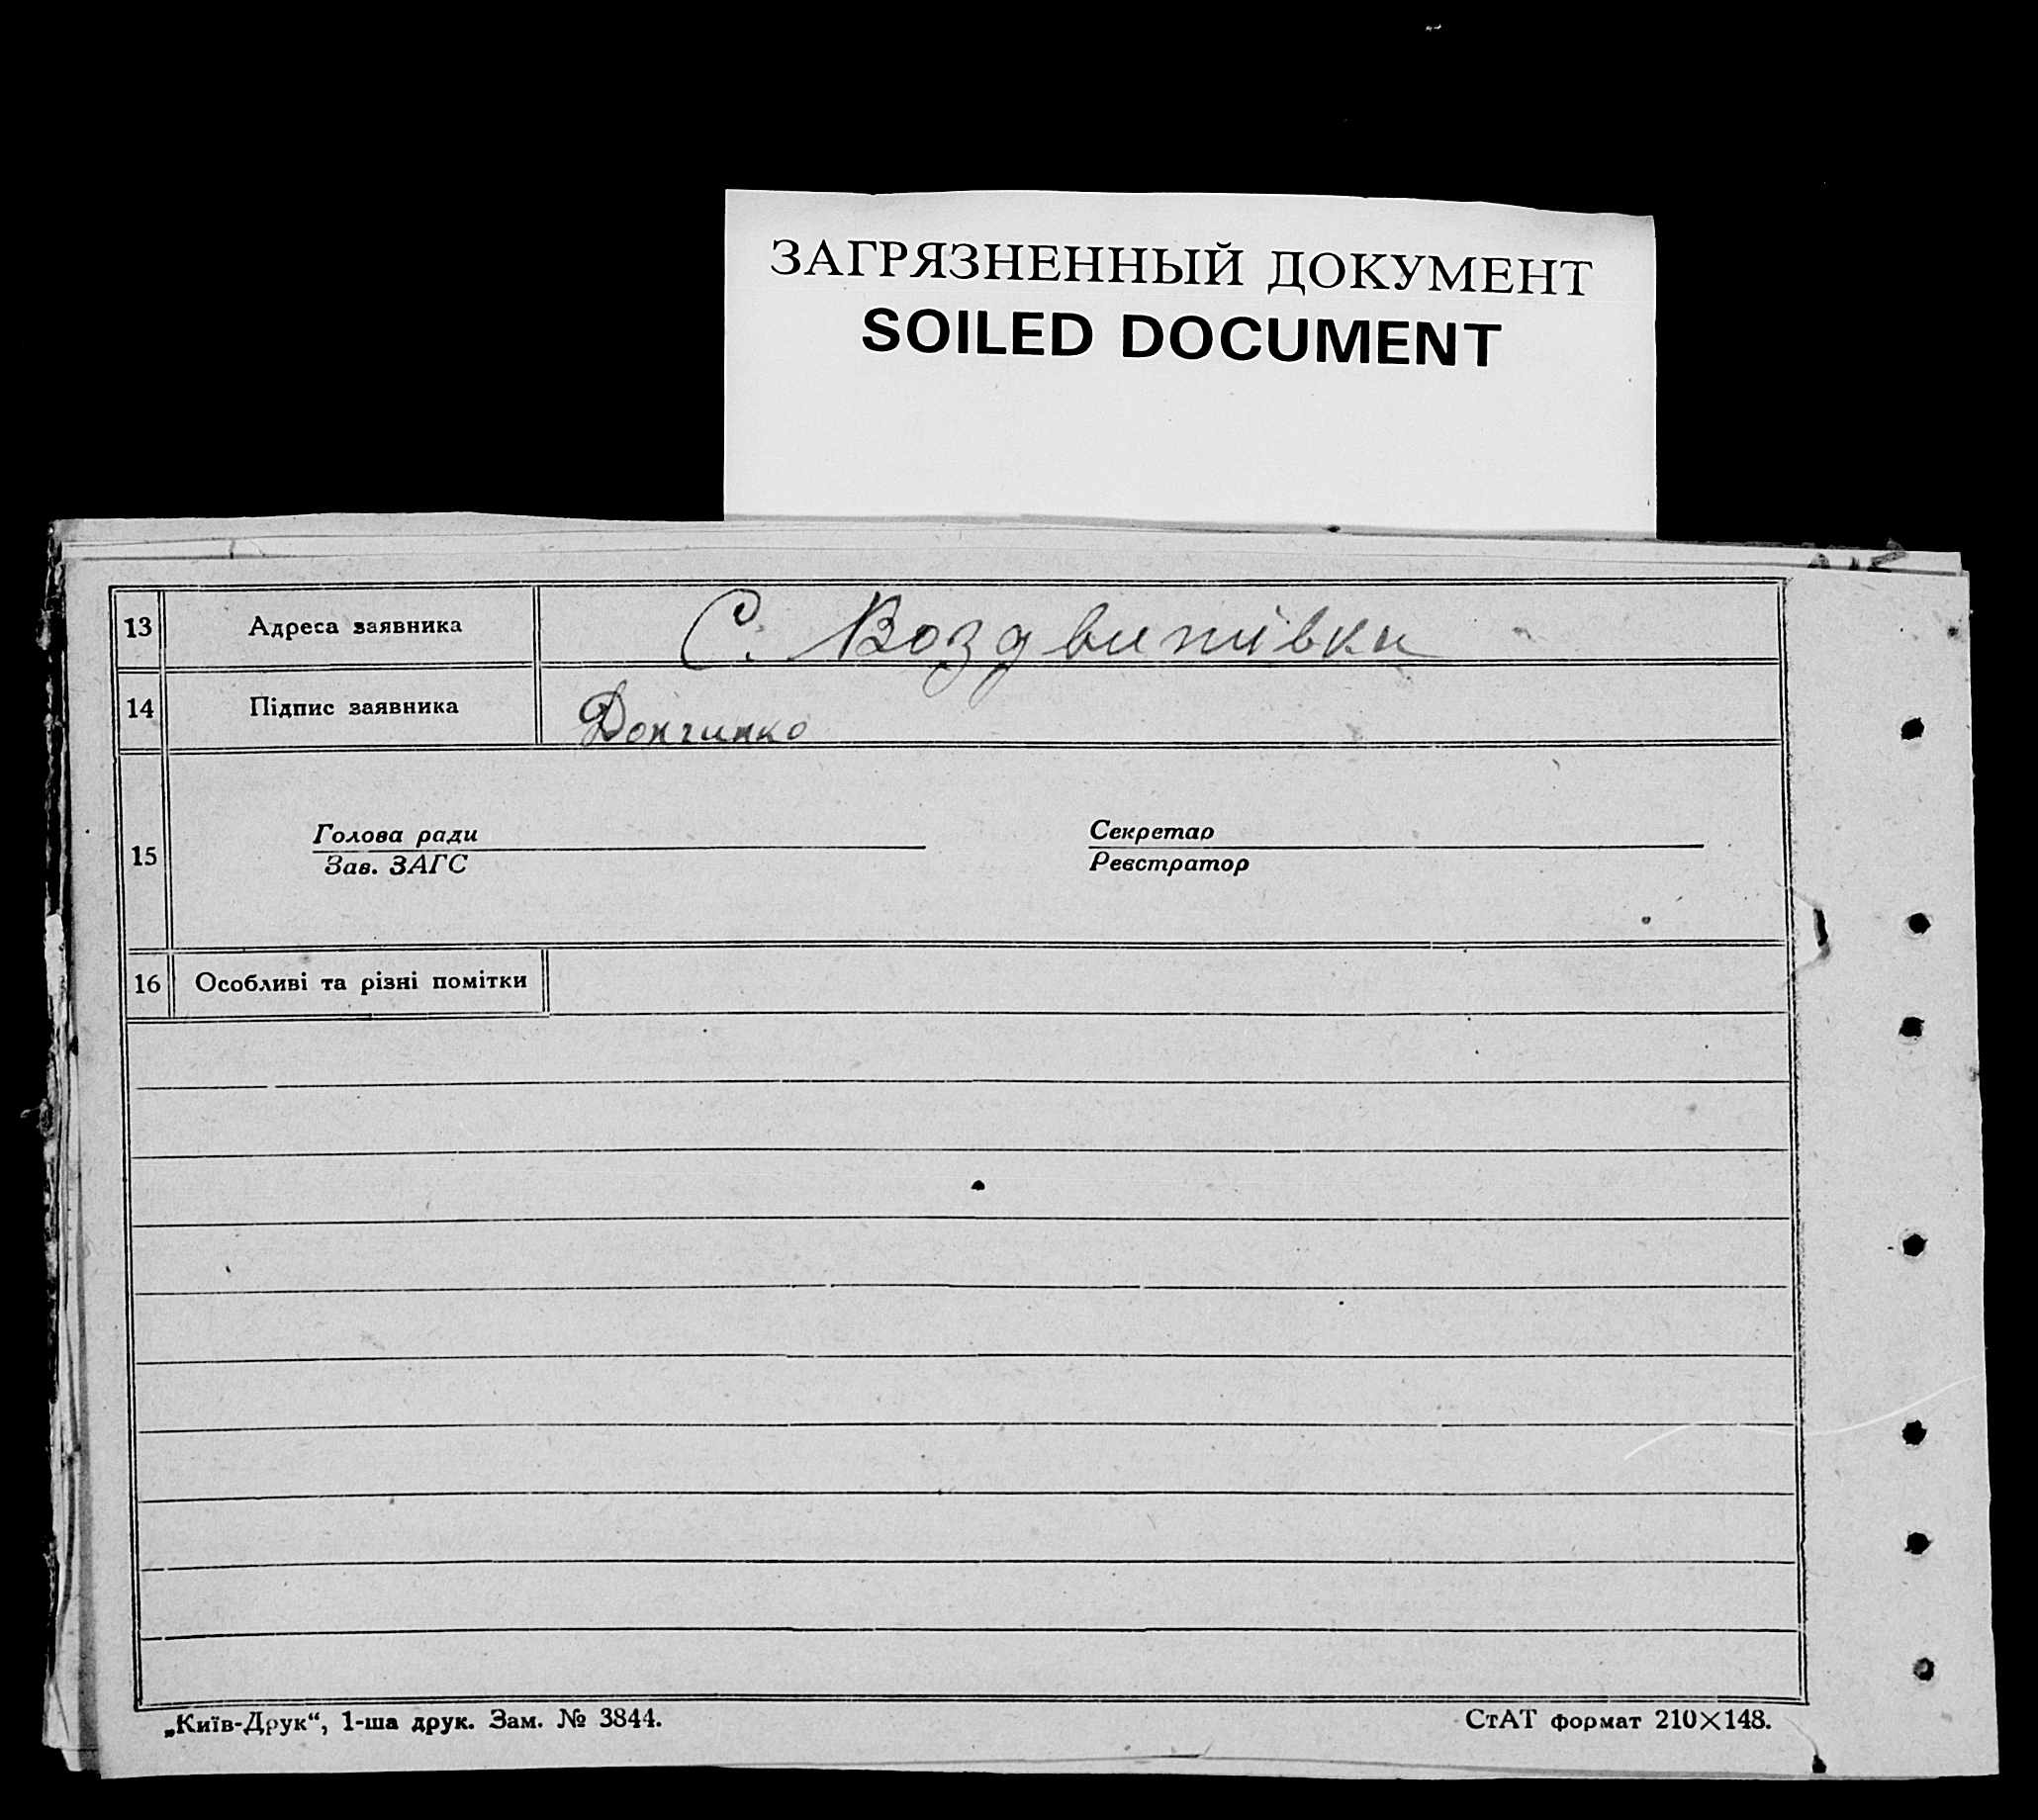 ЗАГРЯЗНЕННЫЙ ДОКУМЕНТ
SOILED DOCUMENT
13 Адреса заявника С.
14 Підпис заявника
15
Голова ради Секретар
Зав. ЗАГС Реєстратор
16 Особливі та різні помітки
„Київ-Друк“, 1-ша друк. Зам. № 3844. СтАТ формат 210×148.